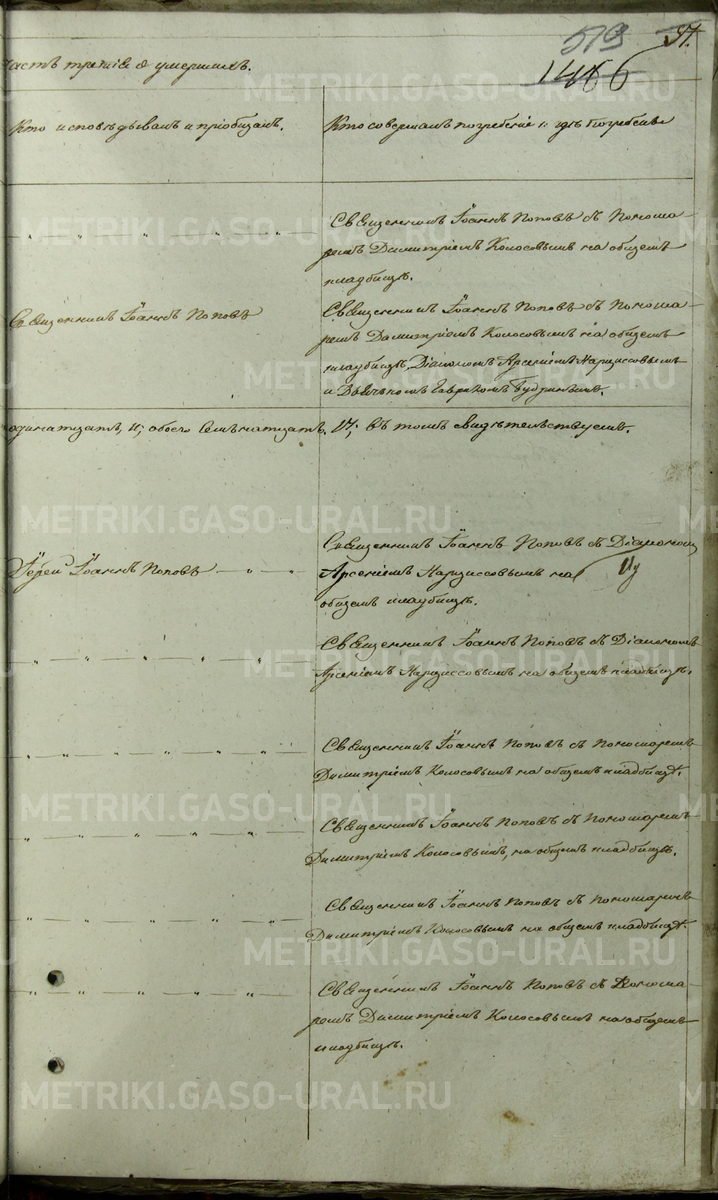 579
57.
1486
Часть третія о умершихъ.
Кто исповѣдывалъ и пріобщалъ.
Кто совершалъ погребеніе и гдѣ погребены
Священникъ Іоаннъ Поповъ съ Понома-
ремъ Димитріемъ Колосовымъ на общемъ
кладбищѣ.
Священникъ Іоаннъ Поповъ
Священникъ Іоаннъ Поповъ съ Понома-
ремъ Димитріемъ Колосовымъ на общемъ
кладбищѣ, Діакономъ Арсеніемъ Нарциссовымъ
и Дьячкомъ
одинатцать, 11; обоего семьнатцать, 17; въ томъ свидѣтельствуемъ.
Іерей Іоаннъ Поповъ
Священникъ Іоаннъ Поповъ съ Діакономъ
Арсеніемъ Нарциссовымъ на
общемъ кладбищѣ.
Священникъ Іоаннъ Поповъ съ Діакономъ
Арсеніемъ Нарциссовымъ на общемъ кладбищѣ.
Священникъ Іоаннъ Поповъ съ Пономаремъ
Димитріемъ Колосовымъ на общемъ кладбищѣ.
Священникъ Іоаннъ Поповъ съ Пономаремъ
Димитріемъ Колосовымъ, на общемъ кладбищѣ.
Священникъ Іоаннъ Поповъ съ Пономаремъ
Димитріемъ Колосовымъ на общемъ кладбищѣ.
Священникъ Іоаннъ Поповъ съ Понома-
ремъ Димитріемъ Колосовымъ на общемъ
кладбищѣ.
METRIKI.GASO-URAL.RU